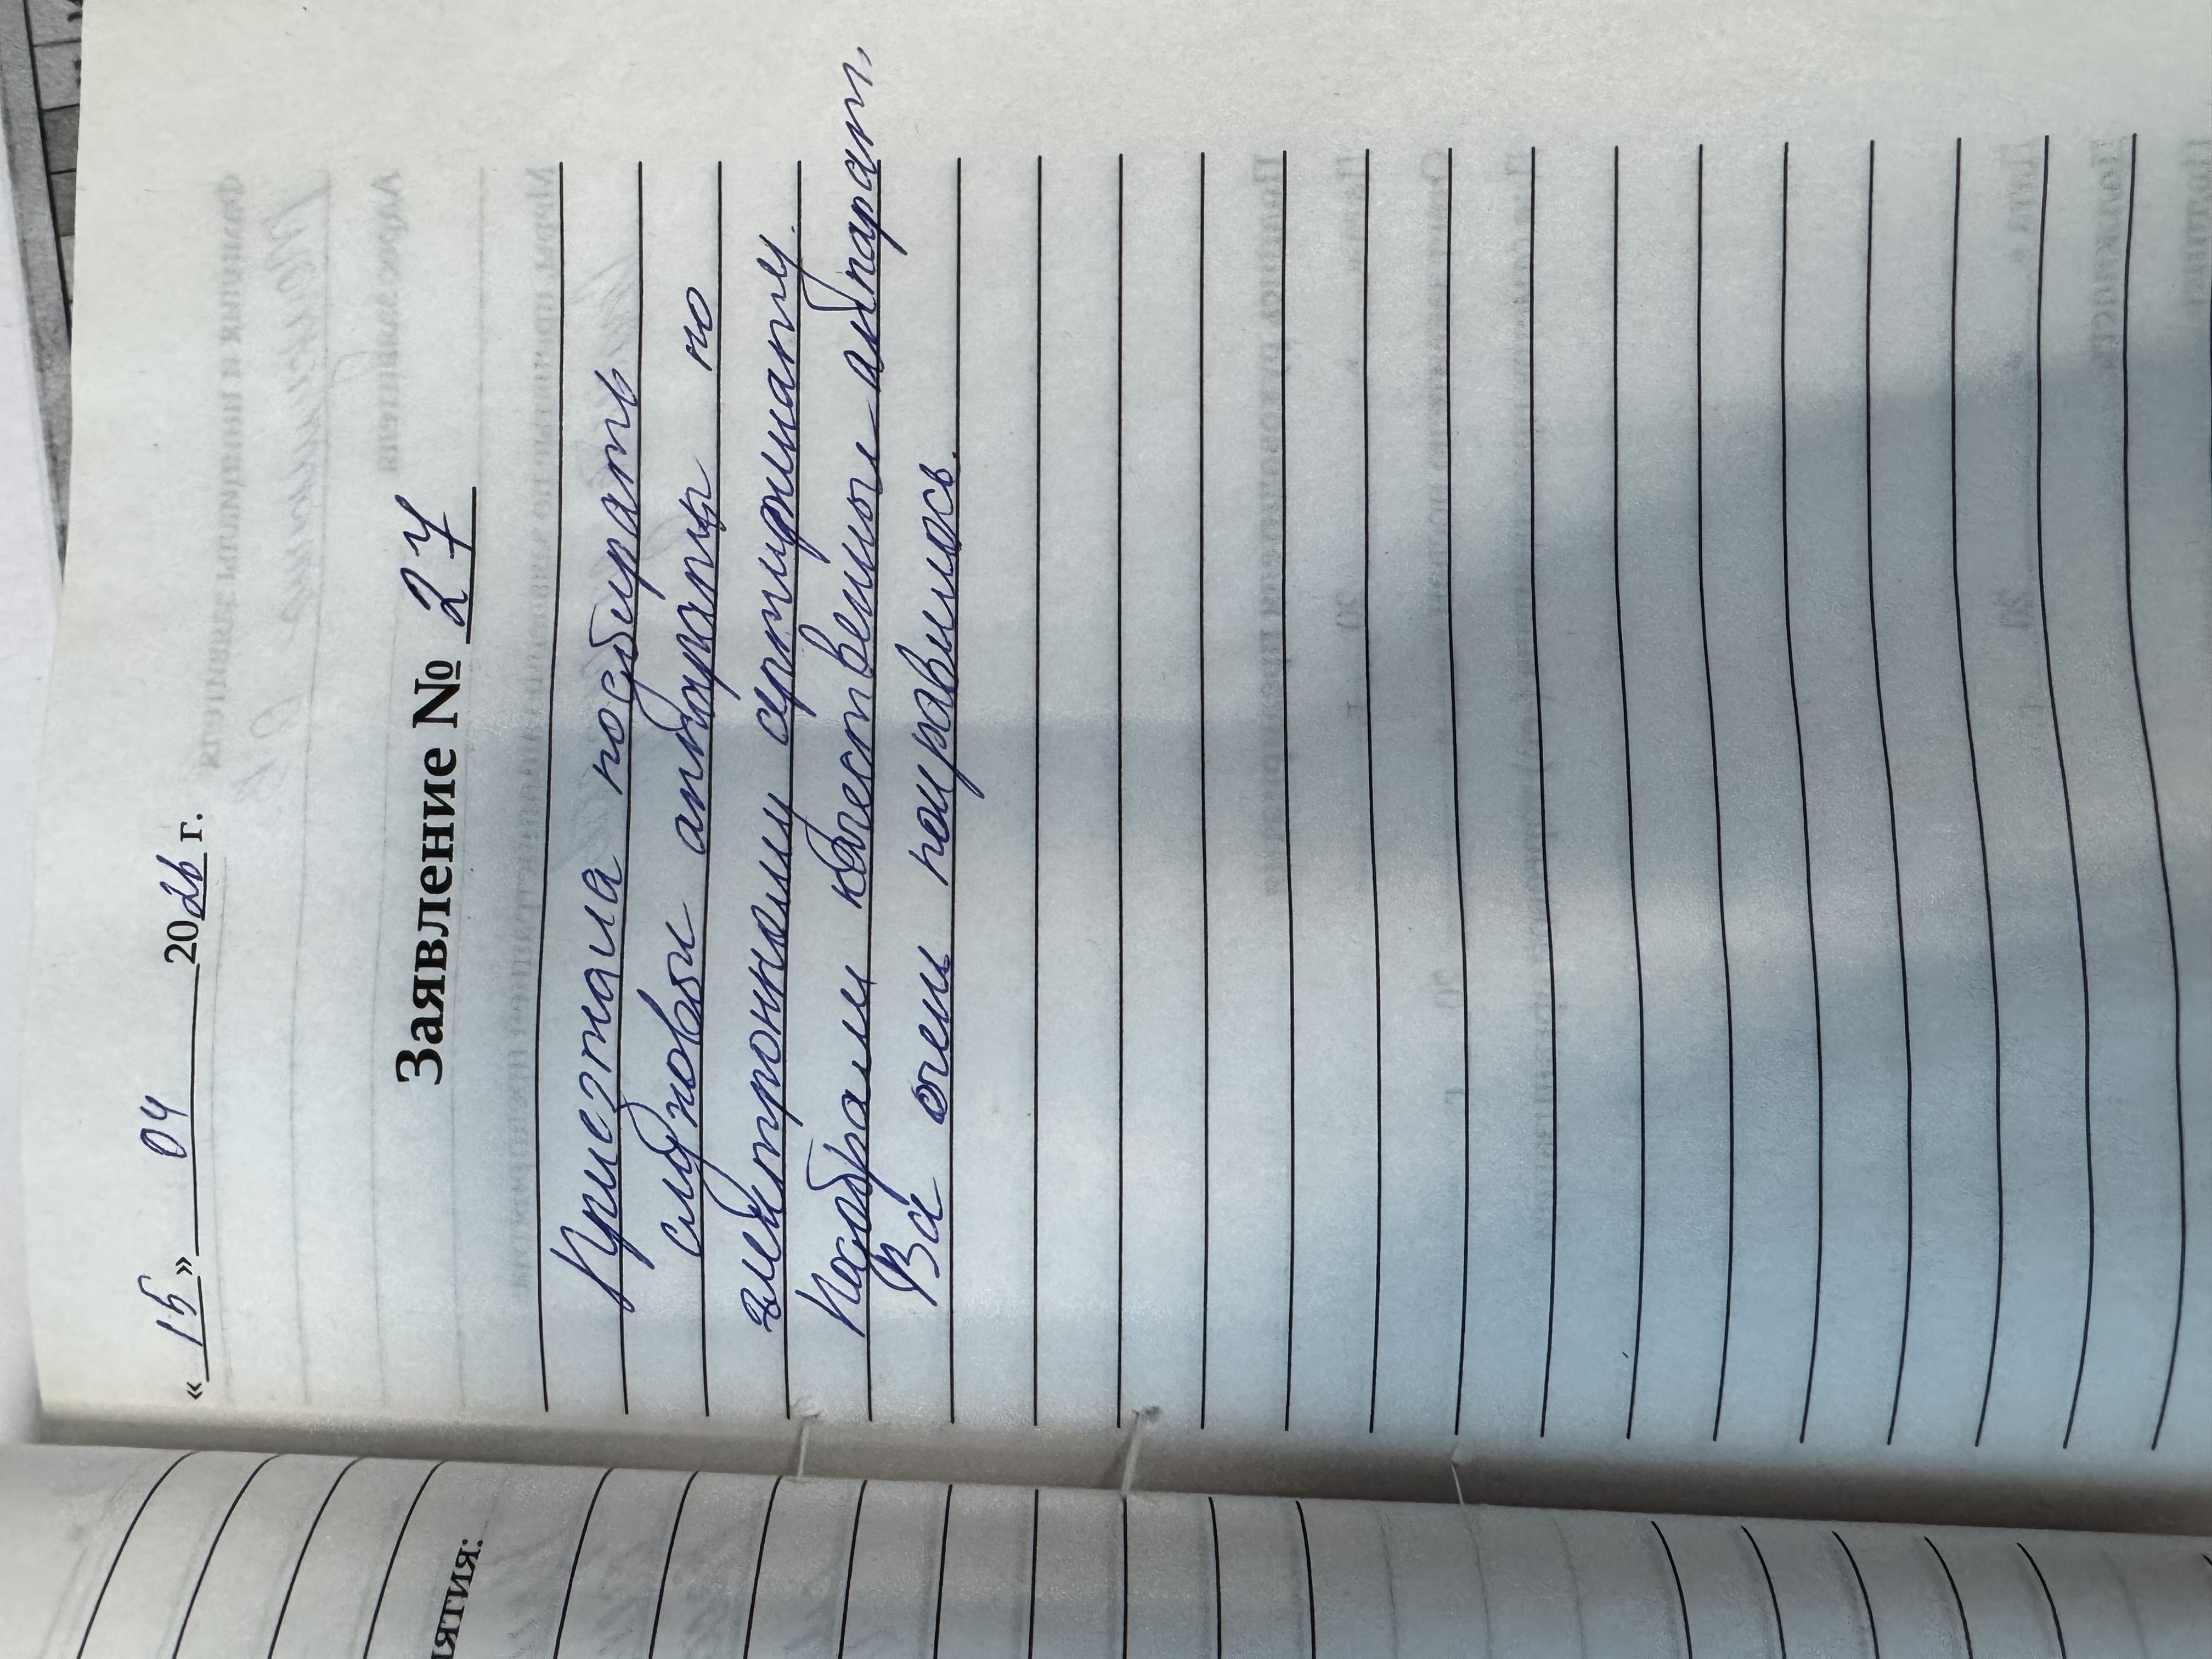 « 15 » 04 2026 г.
Заявление № 27
Приезжала подбирать
слуховой аппарат по
электронному сертификату.
Подобрали качественный аппарат.
Все очень понравилось.
ятия: